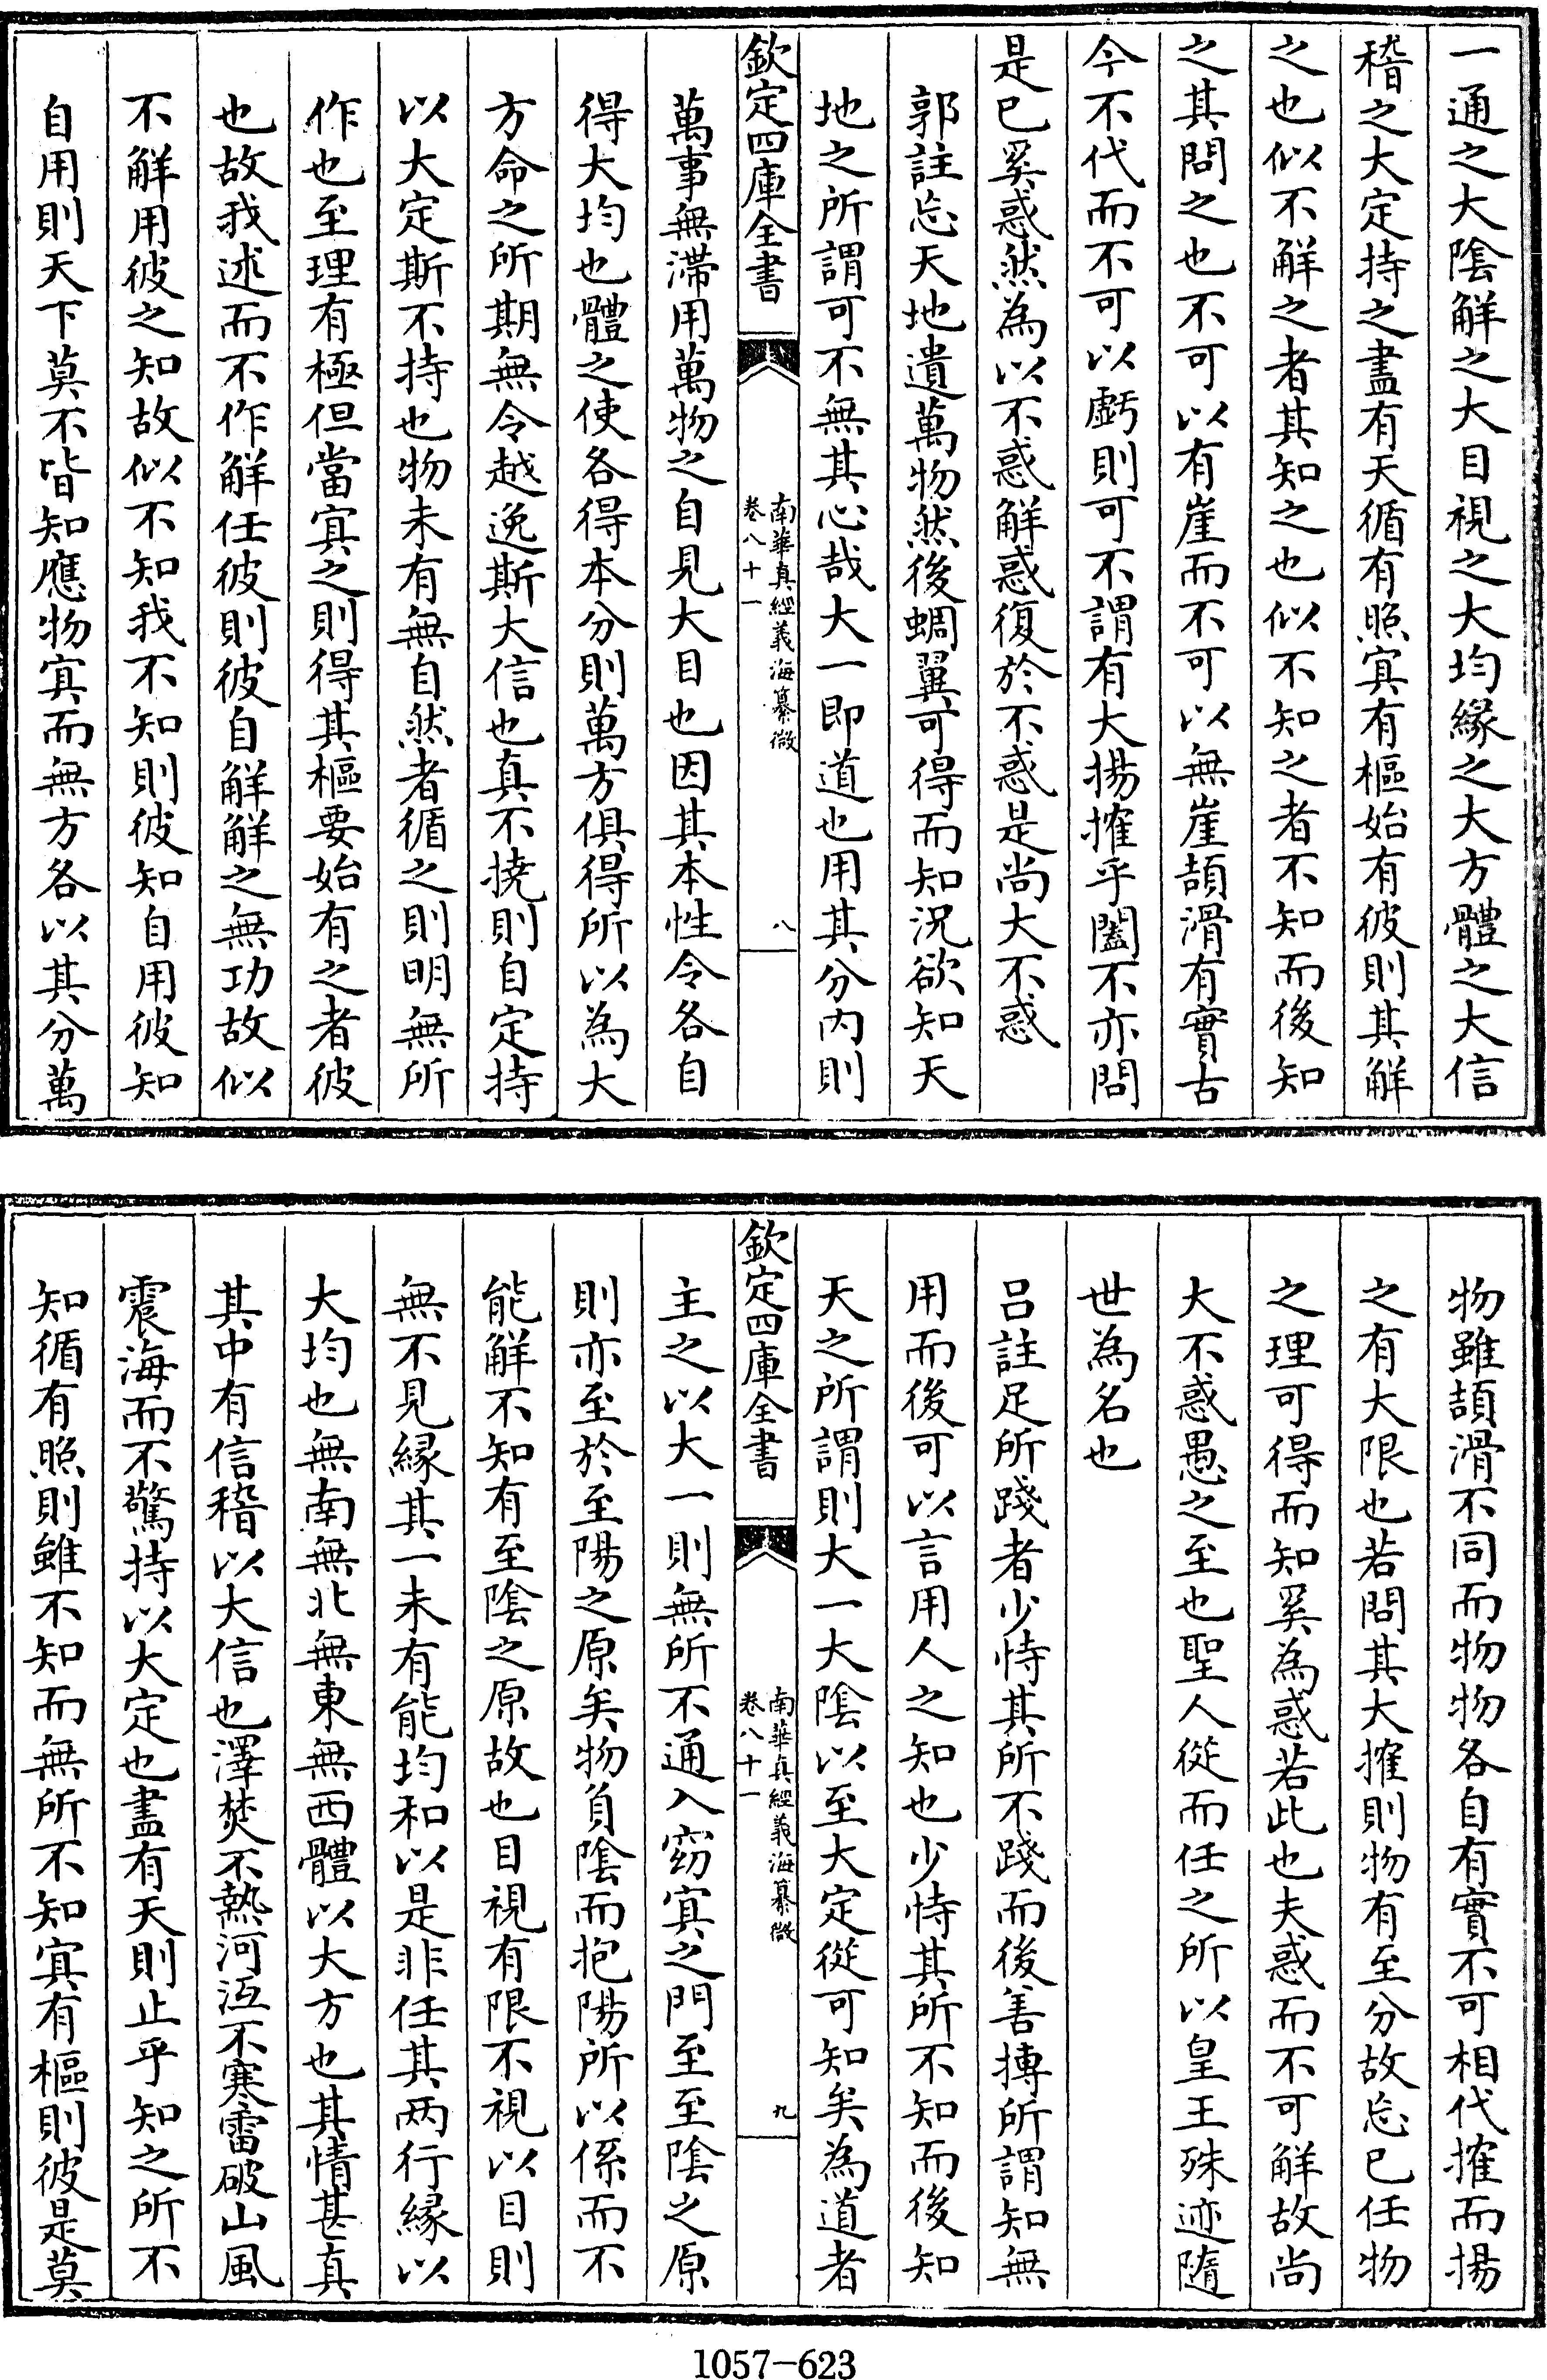 一通之大陰解之大目視之大均緣之大方體之大信
稽之大定持之盡有天循有照㝠有樞始有彼則其解
之也似不解之者其知之也似不知之者不知而後知
之其問之也不可以有崖而不可以無崖頡滑有實古
今不代而不可以虧則可不謂有大揚搉乎闔不亦問
是已奚惑然為以不惑解惑復於不惑是尚大不惑
郭註忘天地遺萬物然後蜩翼可得而知況欲知天
地之所謂可不無其心哉大一即道也用其分內則
欽定四庫全書
南華真經義海纂微
卷八十一
八
萬事無滯用萬物之自見大目也因其本性令各自
得大均也體之使各得本分則萬方俱得所以為大
方命之所期無令越逸斯大信也真不撓則自定持
以大定斯不持也物未有無自然者循之則明無所
作也至理有極但當㝠之則得其樞要始有之者彼
也故我述而不作解任彼則彼自解解之無功故似
不解用彼之知故似不知我不知則彼知自用彼知
自用則天下莫不皆知應物㝠而無方各以其分萬
物雖頡滑不同而物物各自有實不可相代搉而揚
之有大限也若問其大搉則物有至分故忘已任物
之理可得而知奚為惑若此也夫惑而不可解故尚
大不惑愚之至也聖人從而任之所以皇王殊迹隨
世為名也
呂註足所踐者少恃其所不踐而後善摶所謂知無
用而後可以言用人之知也少恃其所不知而後知
天之所謂則大一大陰以至大定從可知矣為道者
欽定四庫全書
南華真經義海纂微
卷八十一
九
主之以大一則無所不通入窈㝠之門至至陰之原
則亦至於至陽之原矣物負陰而抱陽所以係而不
能解不知有至陰之原故也目視有限不視以目則
無不見緣其一未有能均和以是非任其两行緣以
大均也無南無北無東無西體以大方也其情甚真
其中有信稽以大信也澤焚不熱河沍不寒雷破山風
震海而不驚持以大定也盡有天則止乎知之所不
知循有照則雖不知而無所不知㝠有樞則彼是莫
1057-623